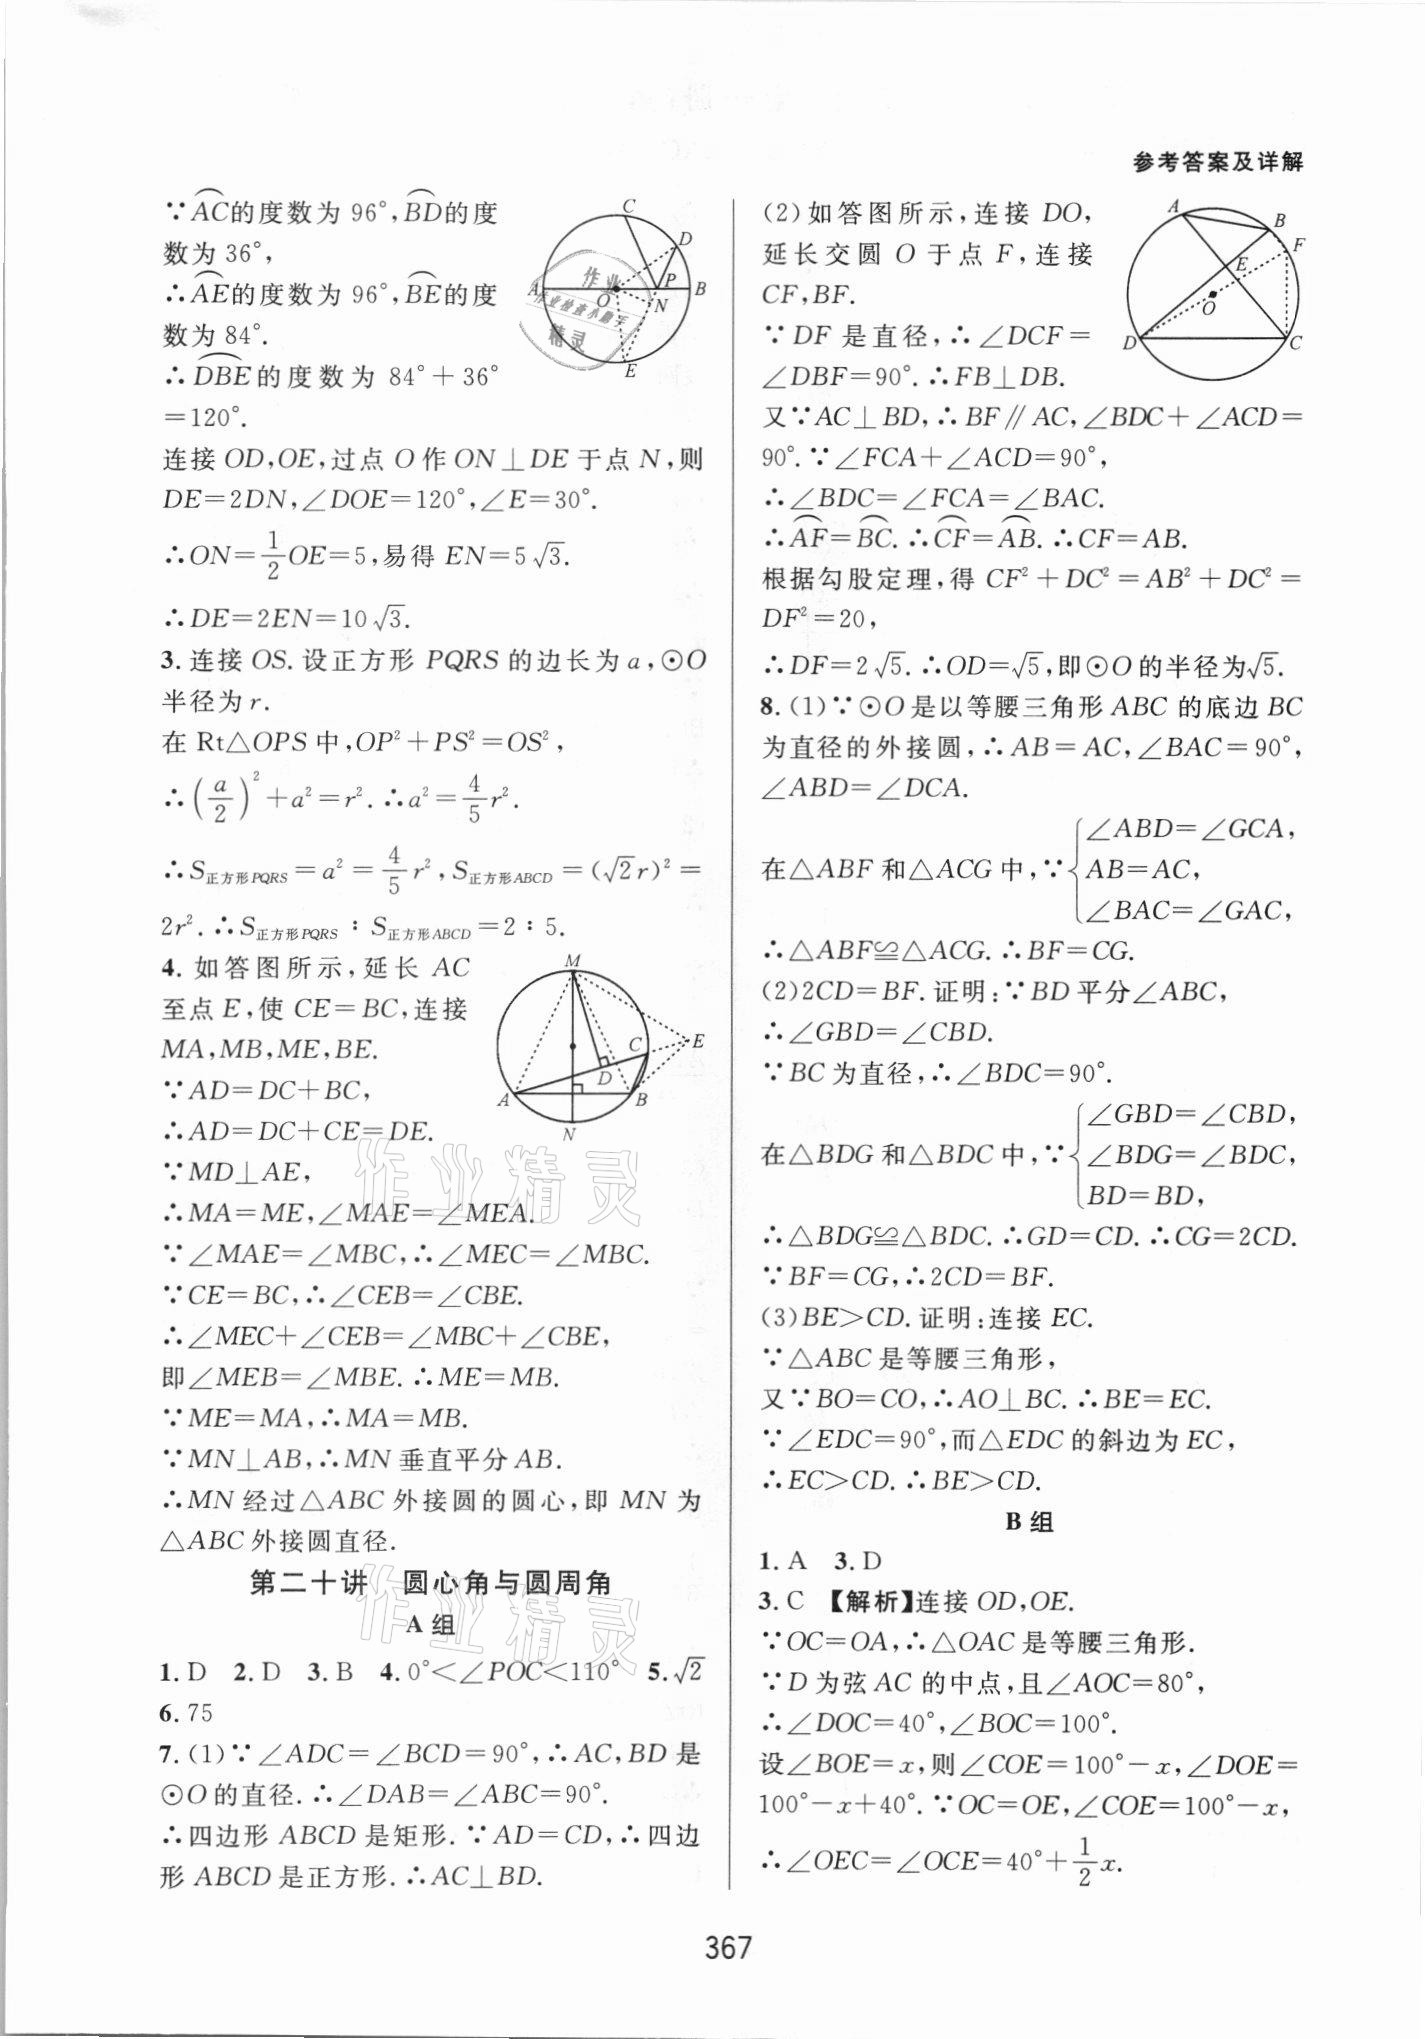 参考答案及详解
∵A͡C的度数为 96°,B͡D的度
数为 36°,
∴A͡E的度数为 96°,B͡E的度
数为 84°.
∴D͡BE的度数为 84°+36°
=120°.
连接 OD,OE,过点 O 作 ON⊥DE 于点 N,则
DE=2DN,∠DOE=120°,∠E=30°.
∴ON=1/2 OE=5,易得 EN=5√3.
∴DE=2EN=10√3.
3.连接 OS.设正方形 PQRS 的边长为 a,⊙O
半径为 r.
在 Rt△OPS 中,OP²+PS²=OS²,
∴(a/2)²+a²=r².∴a²=4/5 r².
∴S正方形PQRS=a²=4/5 r²,S正方形ABCD=(√2r)²=
2r².∴S正方形PQRS∶S正方形ABCD=2∶5.
4.如答图所示,延长 AC
至点 E,使 CE=BC,连接
MA,MB,ME,BE.
∵AD=DC+BC,
∴AD=DC+CE=DE.
∵MD⊥AE,
∴MA=ME,∠MAE=∠MEA.
∵∠MAE=∠MBC,∴∠MEC=∠MBC.
∵CE=BC,∴∠CEB=∠CBE.
∴∠MEC+∠CEB=∠MBC+∠CBE,
即∠MEB=∠MBE.∴ME=MB.
∵ME=MA,∴MA=MB.
∵MN⊥AB,∴MN 垂直平分 AB.
∴MN 经过△ABC 外接圆的圆心,即 MN 为
△ABC 外接圆直径.
第二十讲 圆心角与圆周角
A 组
1.D 2.D 3.B 4.0°<∠POC<110° 5.√2
6.75
7.(1)∵∠ADC=∠BCD=90°,∴AC,BD 是
⊙O 的直径.∴∠DAB=∠ABC=90°.
∴四边形 ABCD 是矩形.∵AD=CD,∴四边
形 ABCD 是正方形.∴AC⊥BD.
(2)如答图所示,连接 DO,
延长交圆 O 于点 F,连接
CF,BF.
∵DF 是直径,∴∠DCF=
∠DBF=90°.∴FB⊥DB.
又∵AC⊥BD,∴BF∥AC,∠BDC+∠ACD=
90°.∵∠FCA+∠ACD=90°,
∴∠BDC=∠FCA=∠BAC.
∴A͡F=B͡C.∴C͡F=A͡B.∴CF=AB.
根据勾股定理,得 CF²+DC²=AB²+DC²=
DF²=20,
∴DF=2√5.∴OD=√5,即⊙O 的半径为√5.
8.(1)∵⊙O 是以等腰三角形 ABC 的底边 BC
为直径的外接圆,∴AB=AC,∠BAC=90°,
∠ABD=∠DCA.
∠ABD=∠GCA,
在△ABF 和△ACG 中,∵{AB=AC,
∠BAC=∠GAC,
∴△ABF≌△ACG.∴BF=CG.
(2)2CD=BF.证明:∵BD 平分∠ABC,
∴∠GBD=∠CBD.
∵BC 为直径,∴∠BDC=90°.
∠GBD=∠CBD,
在△BDG 和△BDC 中,∵{∠BDG=∠BDC,
BD=BD,
∴△BDG≌△BDC.∴GD=CD.∴CG=2CD.
∵BF=CG,∴2CD=BF.
(3)BE>CD.证明:连接 EC.
∵△ABC 是等腰三角形,
又∵BO=CO,∴AO⊥BC.∴BE=EC.
∵∠EDC=90°,而△EDC 的斜边为 EC,
∴EC>CD.∴BE>CD.
B 组
1.A 3.D
3.C 【解析】连接 OD,OE.
∵OC=OA,∴△OAC 是等腰三角形.
∵D 为弦 AC 的中点,且∠AOC=80°,
∴∠DOC=40°,∠BOC=100°.
设∠BOE=x,则∠COE=100°-x,∠DOE=
100°-x+40°.∵OC=OE,∠COE=100°-x,
∴∠OEC=∠OCE=40°+1/2 x.
367